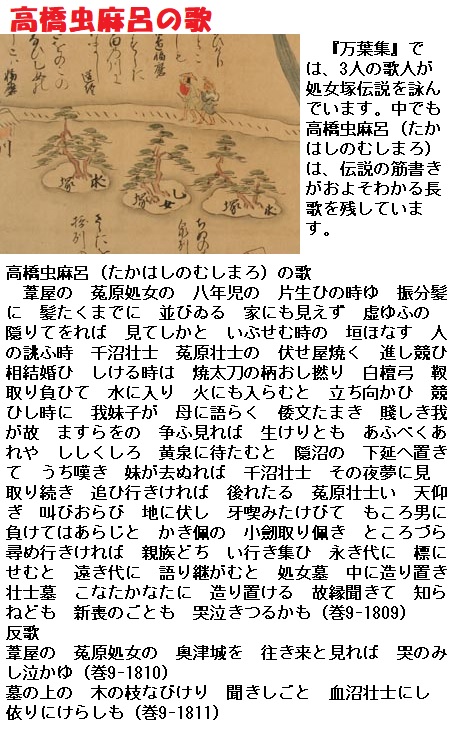 高橋虫麻呂の歌
『万葉集』で
は、3人の歌人が
処女塚伝説を詠ん
でいます。中でも
高橋虫麻呂（たか
はしのむしまろ）
は、伝説の筋書き
がおよそわかる長
歌を残していま
す。
塚
塚
高橋虫麻呂（たかはしのむしまろ）の歌
葦屋の　菟原処女の　八年児の　片生ひの時ゆ　振分髪
に　髪たくまでに　並びゐる　家にも見えず　虚ゆふの
隠りてをれば　見てしかと　いぶせむ時の　垣ほなす　人
の誂ふ時　千沼壮士　菟原壮士の　伏せ屋焼く　進し競ひ
相結婚ひ　しける時は　焼太刀の柄おし撚り　白檀弓　靫
取り負ひて　水に入り　火にも入らむと　立ち向かひ　競
ひし時に　我妹子が　母に語らく　倭文たまき　賤しき我
が故　ますらをの　争ふ見れば　生けりとも　あふべくあ
れや　ししくしろ　黄泉に待たむと　隠沼の　下延へ置き
て　うち嘆き　妹が去ぬれば　千沼壮士　その夜夢に見
取り続き　追ひ行きければ　後れたる　菟原壮士い　天仰
ぎ　叫びおらび　地に伏し　牙喫みたけびて　もころ男に
負けてはあらじと　かき佩の　小劔取り佩き　ところづら
尋め行きければ　親族どち　い行き集ひ　永き代に　標に
せむと　遠き代に　語り継がむと　処女墓　中に造り置き
壮士墓　こなたかなたに　造り置ける　故縁聞きて　知ら
ねども　新喪のごとも　哭泣きつるかも（巻9-1809）
反歌
葦屋の　菟原処女の　奥津城を　往き来と見れば　哭のみ
し泣かゆ（巻9-1810）
墓の上の　木の枝なびけり　聞きしごと　血沼壮士にし
依りにけらしも（巻9-1811）